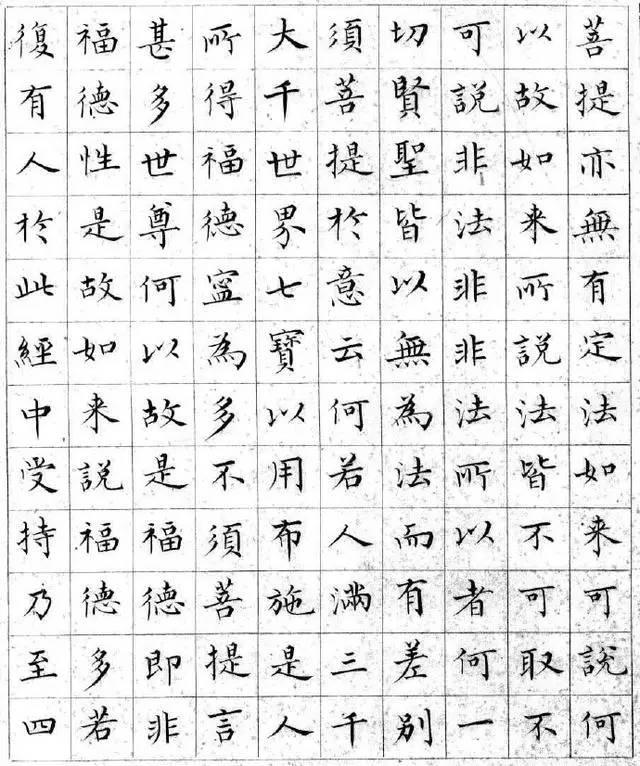 菩提亦無有定法如来可說何
以故如来所說法皆不可取不
可說非法非非法所以者何一
切賢聖皆以無為法而有差別
須菩提於意云何若人滿三千
大千世界七寶以用布施是人
所得福德寍為多不須菩提言
甚多世尊何以故是福德即非
福德性是故如来說福德多若
復有人於此經中受持乃至四